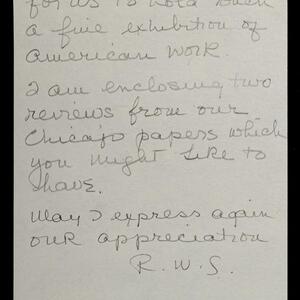 for us to hold such
a fine exhibition of
American work.
I am enclosing two
reviews from our
Chicago papers which
you might like to
have.
May I express again
our appreciation
R. W. S.